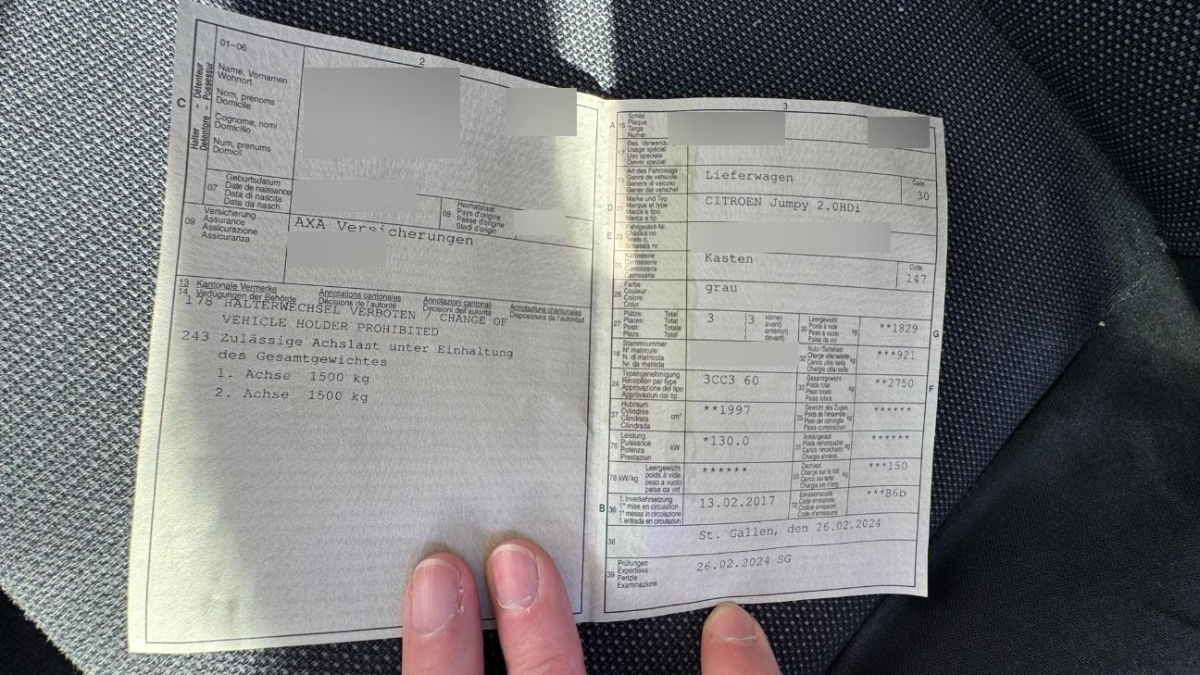 01–06
2
C
Halter – Détenteur
Detentore – Possessur
Name, Vornamen
Wohnort
Nom, prénoms
Domicile
Cognome, nomi
Domicilio
Num, prenums
Domicil
07
Geburtsdatum
Date de naissance
Data di nascita
Data da nasch.
08
Heimatstaat
Pays d'origine
Paese d'origine
Stadi d'origin
09
Versicherung
Assurance
Assicurazione
Assicuranza
AXA Versicherungen
13
14
Kantonale Vermerke
Verfügungen der Behörde
Annotations cantonales
Décisions de l'autorité
Annotazioni cantonali
Decisioni dell'autorità
Annotaziuns chantunalas
Disposiziuns de l'autoritad
178 HALTERWECHSEL VERBOTEN / CHANGE OF
VEHICLE HOLDER PROHIBITED
243 Zulässige Achslast unter Einhaltung
des Gesamtgewichtes
1. Achse 1500 kg
2. Achse 1500 kg
3
A 15
Schild
Plaque
Targa
Numer
17
Bes. Verwend.
Usage spécial
Uso speciale
Diever spezial
Art des Fahrzeugs
Genre de véhicule
Genere di veicolo
Gener dal vehichel
Lieferwagen
Code
30
D 21
Marke und Typ
Marque et type
Marca e tipo
Marca e tip
CITROEN Jumpy 2.0HDi
E 23
Fahrgestell-Nr.
Châssis no
Telaio n.
Schassis nr.
25
Karosserie
Carrosserie
Carrozzeria
Carossaria
Kasten
Code
147
26
Farbe
Couleur
Colore
Colur
grau
27
Plätze: Total
Places: Total
Posti: Totale
Plazs: Total
3
(3
vorne)
avant)
anteriori)
davant)
30
Leergewicht
Poids à vide
Peso a vuoto
Paisa da vid
kg
**1829
G
18
Stammnummer
N° matricule
N. di matricola
Nr. da matricla
32
Nutz-/Sattellast
Charge utile/sellette
Carico utile/sella
Chargia utila/sella
kg
***921
24
Typengenehmigung
Réception par type
Approvazione del tipo
Approvaziun dal tip
3CC3 60
33
Gesamtgewicht
Poids total
Peso totale
Paisa totala
kg
**2750
F
37
Hubraum
Cylindrée
Cilindrata
Cilindrada
cm³
**1997
35
Gewicht des Zuges
Poids de l'ensemble
Peso del convoglio
Paisa cumposiziun
kg
******
76
Leistung
Puissance
Potenza
Prestaziun
kW
*130.0
31
Anhängelast
Poids remorquable
Carico rimorchiato
Chargia annexa
kg
******
78 kW/kg
Leergewicht
poids à vide
peso a vuoto
paisa da vid
******
55
Dachlast
Charge sur le toit
Carico sul tetto
Chargia sin il tetg
kg
***150
B 36
1. Inverkehrsetzung
1re mise en circulation
1a messa in circolazione
1. entrada en circulaziun
13.02.2017
72
Emissionscode
Code émissions
Codice emissioni
Code d'emissiuns
***B6b
38
St. Gallen, den 26.02.2024
39
Prüfungen
Expertises
Perizie
Examinaziuns
26.02.2024 SG